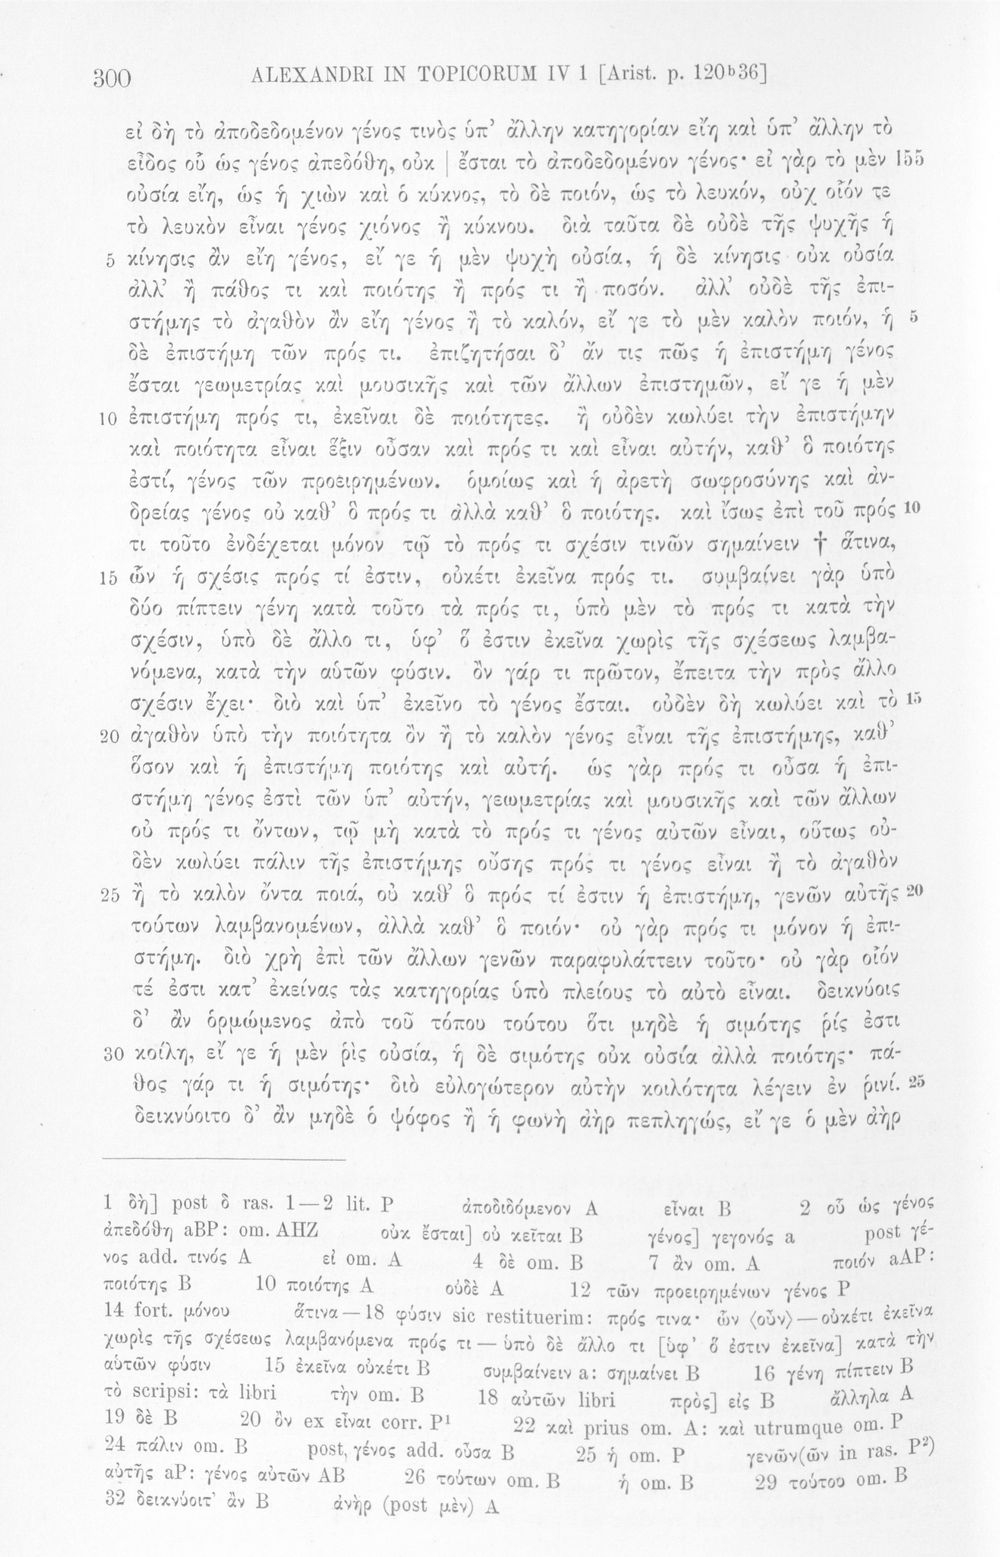 300 ALEXANDRI IN TOPICORUM IV 1 [Arist. p. 120b36]
εἰ δὴ τὸ ἀποδεδομένον γένος τινὸς ὑπ’ ἄλλην κατηγορίαν εἴη καὶ ὑπ’ ἄλλην τὸ
εἶδος οὗ ὡς γένος ἀπεδόθη, οὐκ | ἔσται τὸ ἀποδεδομένον γένος· εἰ γὰρ τὸ μὲν 155
οὐσία εἴη, ὡς ἡ χιὼν καὶ ὁ κύκνος, τὸ δὲ ποιόν, ὡς τὸ λευκόν, οὐχ οἷόν τε
τὸ λευκὸν εἶναι γένος χιόνος ἢ κύκνου. διὰ ταῦτα δὲ οὐδὲ τῆς ψυχῆς ἡ
5 κίνησις ἂν εἴη γένος, εἴ γε ἡ μὲν ψυχὴ οὐσία, ἡ δὲ κίνησις οὐκ οὐσία
ἀλλ’ ἢ πάθος τι καὶ ποιότης ἢ πρός τι ἢ ποσόν. ἀλλ’ οὐδὲ τῆς ἐπι-
στήμης τὸ ἀγαθὸν ἂν εἴη γένος ἢ τὸ καλόν, εἴ γε τὸ μὲν καλὸν ποιόν, ἡ 5
δὲ ἐπιστήμη τῶν πρός τι. ἐπιζητήσαι δ’ ἄν τις πῶς ἡ ἐπιστήμη γένος
ἔσται γεωμετρίας καὶ μουσικῆς καὶ τῶν ἄλλων ἐπιστημῶν, εἴ γε ἡ μὲν
10 ἐπιστήμη πρός τι, ἐκεῖναι δὲ ποιότητες. ἢ οὐδὲν κωλύει τὴν ἐπιστήμην
καὶ ποιότητα εἶναι ἕξιν οὖσαν καὶ πρός τι καὶ εἶναι αὐτήν, καθ’ ὃ ποιότης
ἐστί, γένος τῶν προειρημένων. ὁμοίως καὶ ἡ ἀρετὴ σωφροσύνης καὶ ἀν-
δρείας γένος οὐ καθ’ ὃ πρός τι ἀλλὰ καθ’ ὃ ποιότης. καὶ ἴσως ἐπὶ τοῦ πρός 10
τι τοῦτο ἐνδέχεται μόνον τῷ τὸ πρός τι σχέσιν τινῶν σημαίνειν † ἅτινα,
15 ὧν ἡ σχέσις πρός τί ἐστιν, οὐκέτι ἐκεῖνα πρός τι. συμβαίνει γὰρ ὑπὸ
δύο πίπτειν γένη κατὰ τοῦτο τὰ πρός τι, ὑπὸ μὲν τὸ πρός τι κατὰ τὴν
σχέσιν, ὑπὸ δὲ ἄλλο τι, ὑφ’ ὅ ἐστιν ἐκεῖνα χωρὶς τῆς σχέσεως λαμβα-
νόμενα, κατὰ τὴν αὑτῶν φύσιν. ὂν γάρ τι πρῶτον, ἔπειτα τὴν πρὸς ἄλλο
σχέσιν ἔχει· διὸ καὶ ὑπ’ ἐκεῖνο τὸ γένος ἔσται. οὐδὲν δὴ κωλύει καὶ τὸ 15
20 ἀγαθὸν ὑπὸ τὴν ποιότητα ὂν ἢ τὸ καλὸν γένος εἶναι τῆς ἐπιστήμης, καθ’
ὅσον καὶ ἡ ἐπιστήμη ποιότης καὶ αὐτή. ὡς γὰρ πρός τι οὖσα ἡ ἐπι-
στήμη γένος ἐστὶ τῶν ὑπ’ αὐτήν, γεωμετρίας καὶ μουσικῆς καὶ τῶν ἄλλων
οὐ πρός τι ὄντων, τῷ μὴ κατὰ τὸ πρός τι γένος αὐτῶν εἶναι, οὕτως οὐ-
δὲν κωλύει πάλιν τῆς ἐπιστήμης οὔσης πρός τι γένος εἶναι ἢ τὸ ἀγαθὸν
25 ἢ τὸ καλὸν ὄντα ποιά, οὐ καθ’ ὃ πρός τί ἐστιν ἡ ἐπιστήμη, γενῶν αὐτῆς 20
τούτων λαμβανομένων, ἀλλὰ καθ’ ὃ ποιόν· οὐ γὰρ πρός τι μόνον ἡ ἐπι-
στήμη. διὸ χρὴ ἐπὶ τῶν ἄλλων γενῶν παραφυλάττειν τοῦτο· οὐ γὰρ οἷόν
τέ ἐστι κατ’ ἐκείνας τὰς κατηγορίας ὑπὸ πλείους τὸ αὐτὸ εἶναι. δεικνύοις
δ’ ἂν ὁρμώμενος ἀπὸ τοῦ τόπου τούτου ὅτι μηδὲ ἡ σιμότης ῥίς ἐστι
30 κοίλη, εἴ γε ἡ μὲν ῥὶς οὐσία, ἡ δὲ σιμότης οὐκ οὐσία ἀλλὰ ποιότης· πά-
θος γάρ τι ἡ σιμότης· διὸ εὐλογώτερον αὐτὴν κοιλότητα λέγειν ἐν ῥινί. 25
δεικνύοιτο δ’ ἂν μηδὲ ὁ ψόφος ἢ ἡ φωνὴ ἀὴρ πεπληγώς, εἴ γε ὁ μὲν ἀὴρ
1 δὴ] post δ ras. 1—2 lit. P ἀποδιδόμενον A εἶναι B 2 οὗ ὡς γένος
ἀπεδόθη aBP: om. AHZ οὐκ ἔσται] οὐ κεῖται B γένος] γεγονός a post γέ-
νος add. τινός A εἰ om. A 4 δὲ om. B 7 ἂν om. A ποιόν aAP:
ποιότης B 10 ποιότης A οὐδὲ A 12 τῶν προειρημένων γένος P
14 fort. μόνου ἅτινα—18 φύσιν sic restituerim: πρός τινα· ὧν ⟨οὖν⟩—οὐκέτι ἐκεῖνα
χωρὶς τῆς σχέσεως λαμβανόμενα πρός τι—ὑπὸ δὲ ἄλλο τι [ὑφ’ ὅ ἐστιν ἐκεῖνα] κατὰ τὴν
αὑτῶν φύσιν 15 ἐκεῖνα οὐκέτι B συμβαίνειν a: σημαίνει B 16 γένη πίπτειν B
τὸ scripsi: τὰ libri τὴν om. B 18 αὐτῶν libri πρὸς] εἰς B ἄλληλα A
19 δὲ B 20 ὂν ex εἶναι corr. P¹ 22 καὶ prius om. A: καὶ utrumque om. P
24 πάλιν om. B post γένος add. οὖσα B 25 ἡ om. P γενῶν(ῶν in ras. P²)
αὐτῆς aP: γένος αὐτῶν AB 26 τούτων om. B ἡ om. B 29 τούτου om. B
32 δεικνύοιτ’ ἂν B ἀνὴρ (post μὲν) A